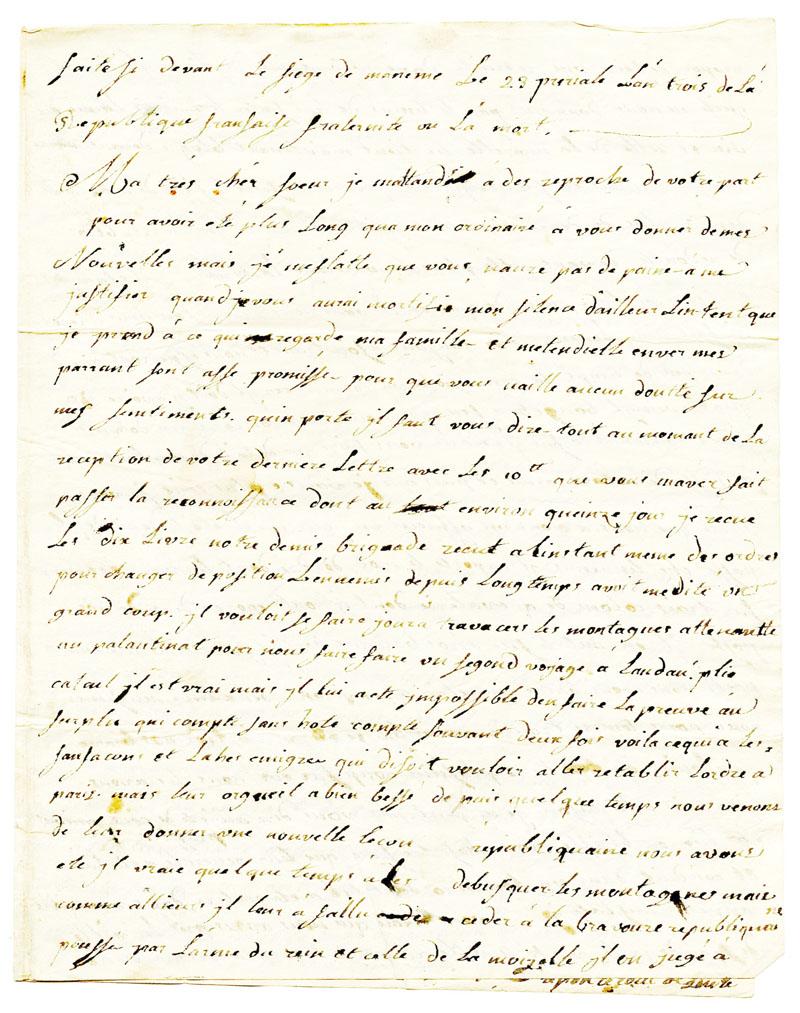 faite si devant Le siege de maneme Le 23 preriale Lan trois de La
Republique fransaise fraternité ou La mort.
Ma tres cher soeur je mattand à des reproche de votre part
pour avoir eté plus Long qua mon ordinaire à vous donner de mes
Nouvelles mais je meflatte que vous naure pas de paine a me
justifier quand je vous aurai mortifie mon silence dailleur Lintent que
je prend à ce qui regarde ma famille et metendielle enver mes
parrant sont assé promisse pour que vous naille aucun doutte sur
mes sentiments. quin porte jl faut vous dire tout au momant de La
reception de votre derniere Lettre avec Les 10tt que vous maver fait
passer la reconnoissance dont au environ queinze jour je recue
Les dix Livre notre demis brigade recut a Linstant meme des ordres
pour changer de position Lennemis depuis Long temps avoit medité un
grand coup. jl vouloit se faire joura travacers les montagues
au palantinat pour nous faire faire un segond voyage à Landau. plie
calcul jl est vrai mais jl lui a eté jmpossible den faire La preuve au
surplu qui compte sans hote compte souvant deux fois voila ce qui a les
fansacons et Lahes emigree qui disoit vouloir aller retablir Lordre a
paris. mais leur orgueil a bien bessé de puis quelque temps nous venons
de leur donner une nouvelle lecon republiquaine nous avons
eté jl vraie quelque temps à les debusquer les montagenes mais
comme allieurs jl leur à fallu ceder à la bravoure republiquaine
pousse par Larme du rein et celle de La moizelle jl en jugé à